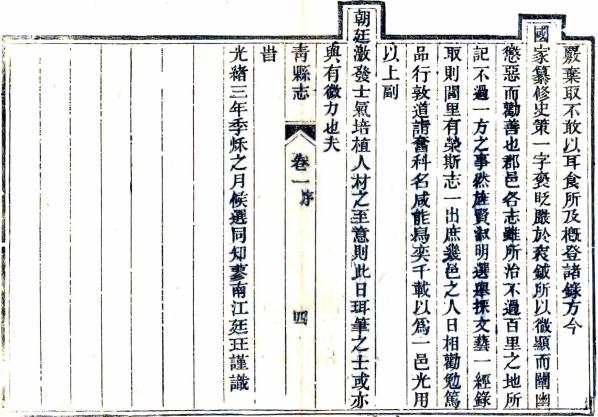 嚴棄取不敢以耳食所及槪登諸錄方今
國家纂修史策一字褒貶嚴於袞鉞所以微顯而闡幽
懲惡而勸善也郡邑各志雖所治不過百里之地所
記不過一方之事然旌賢淑明選舉採文藝一經錄
取則閭里有榮斯志一出庶幾邑之人日相勸勉篤
品行敦道誼奮科名咸能爲奕千載以爲一邑光用
以上副
朝廷激發士氣培植人材之至意則此日珥筆之士或亦
與有微力也夫
青縣志
卷一 序
四
旹
光緒三年季烁之月候選同知蓼南江廷玨謹識